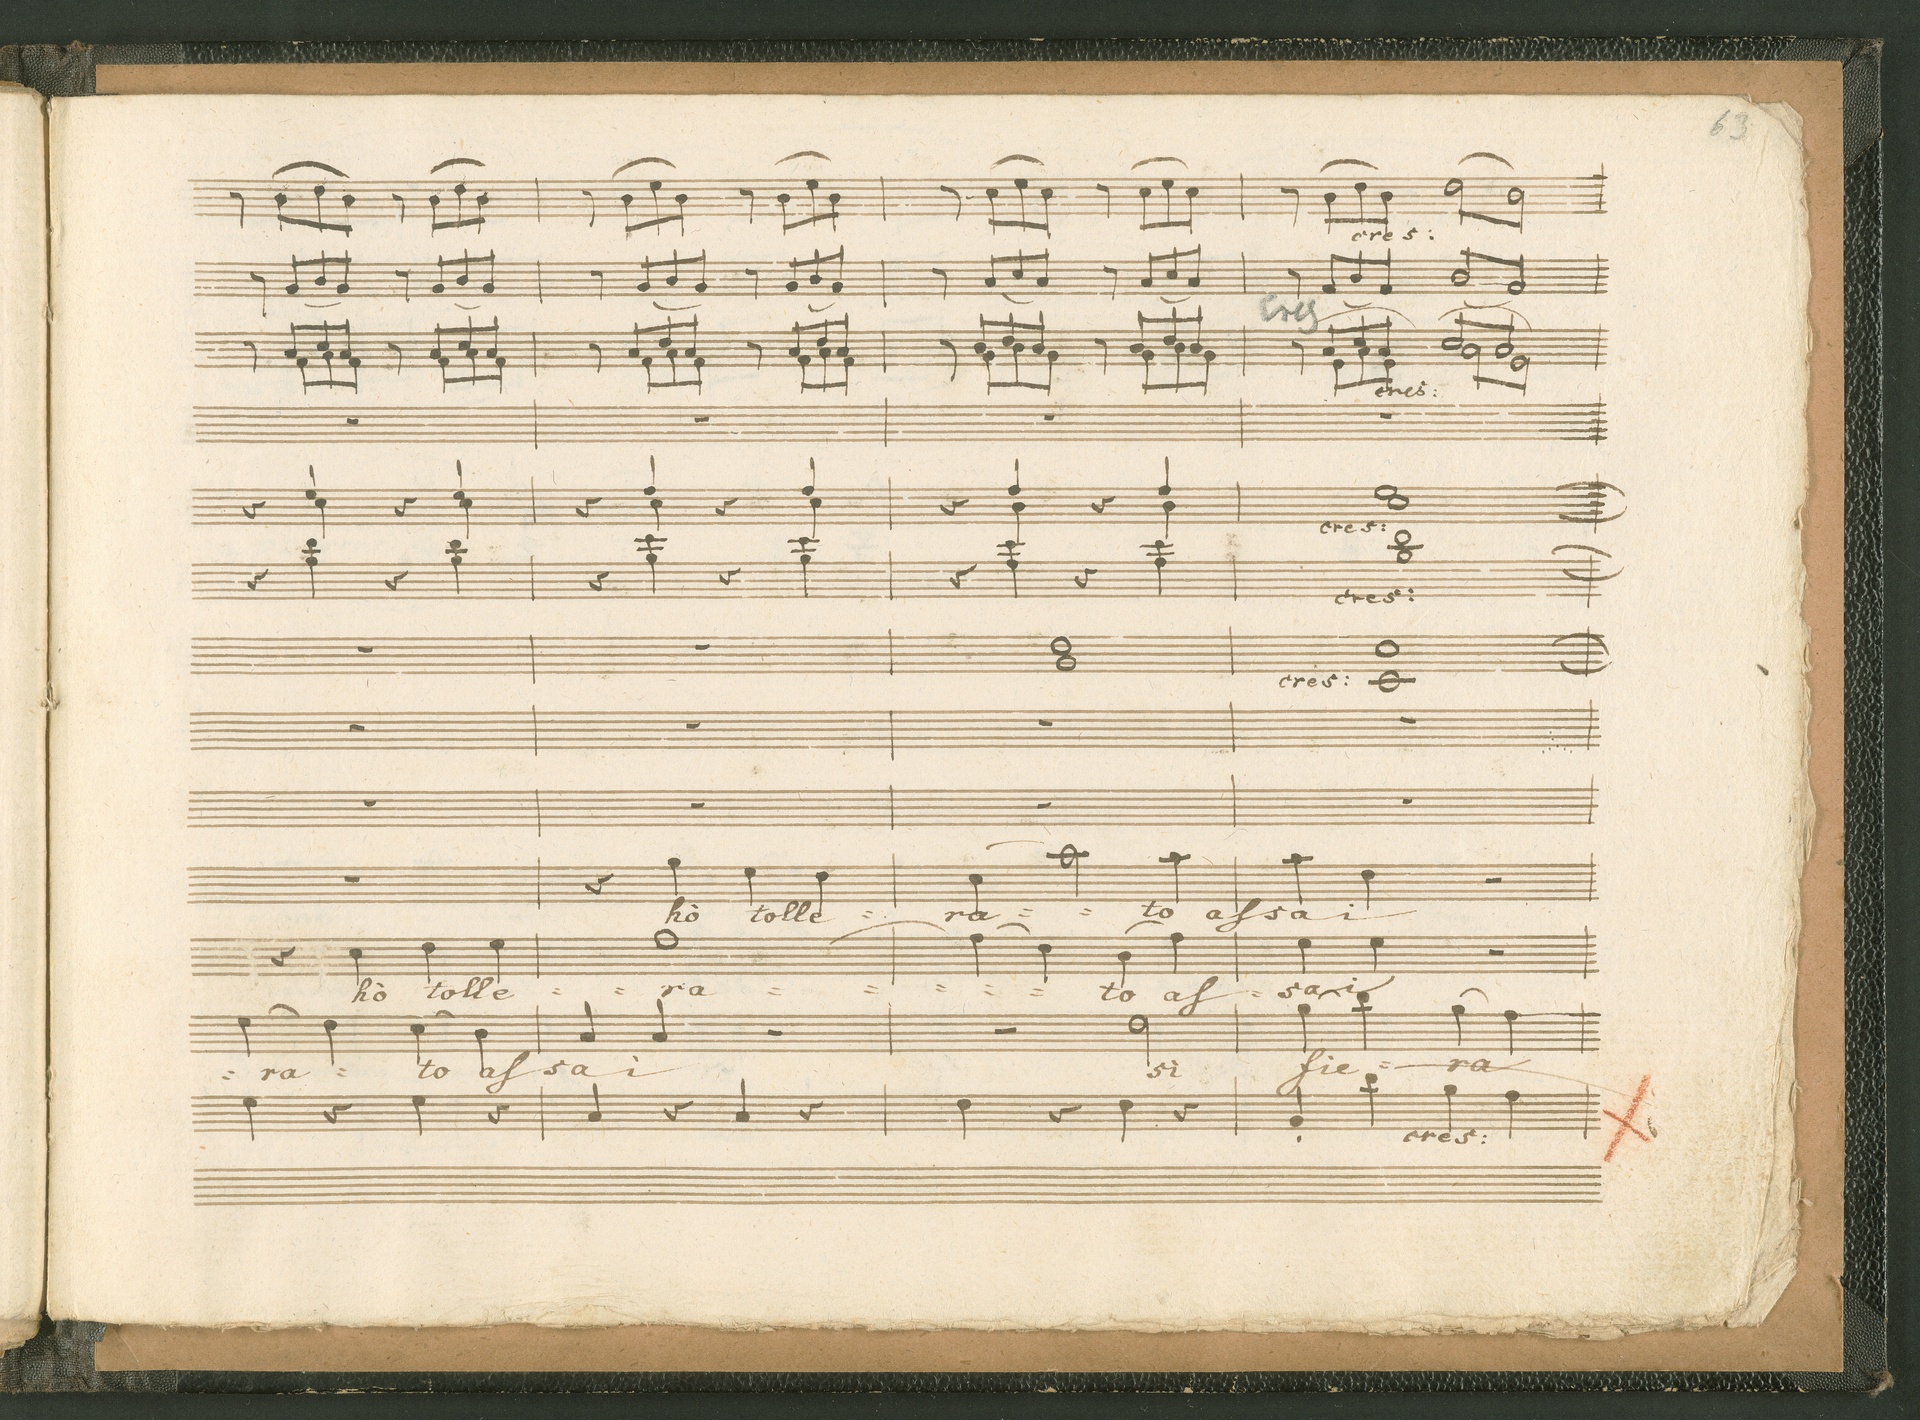 63
cres:
Cres
cres:
cres:
cres:
cres:
hò tolle = ra = = to aſsai
hò tolle = = ra = = = = = to aſ = sai
= ra = to aſsai sì fie = ra
cres: